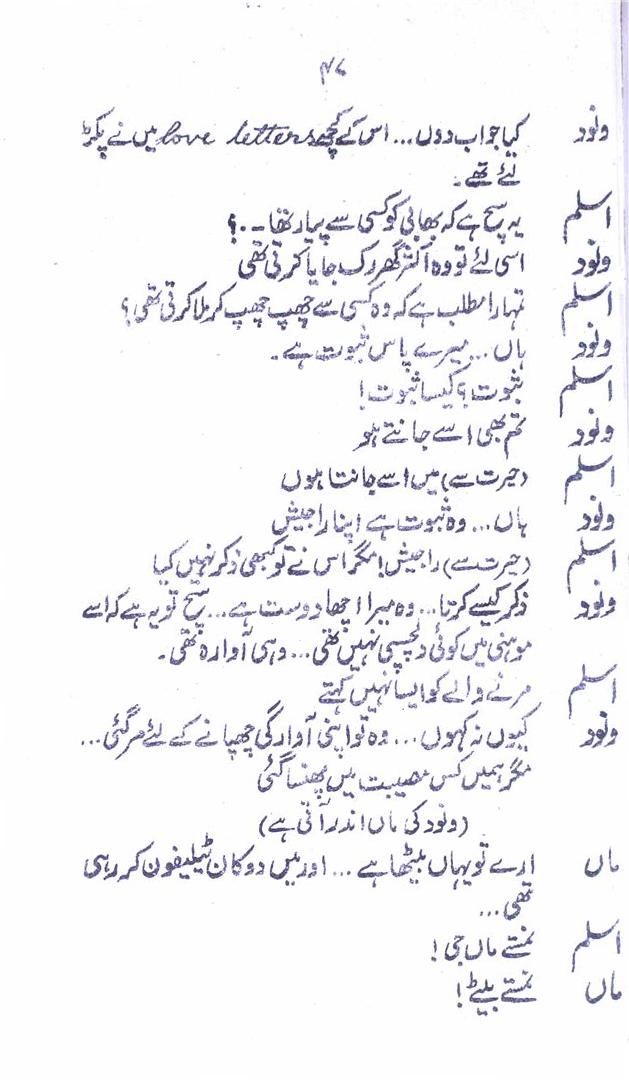 ۴۷
ونود کیا جواب دوں... اس کے کچھ love letters میں نے پکڑ
لئے تھے۔
اسلم یہ سچ ہے کہ بھابی کو کسی سے پیار تھا۔۔؟
ونود اسی لئے تو وہ اکثر گھر رک جایا کرتی تھی
اسلم تمہارا مطلب ہے کہ وہ کسی سے چھپ چھپ کر ملا کرتی تھی؟
ونود ہاں... میرے پاس ثبوت ہے۔
اسلم ثبوت؟ کیسا ثبوت!
ونود تم بھی اسے جانتے ہو
اسلم (حیرت سے) میں اسے جانتا ہوں
ونود ہاں... وہ ثبوت ہے اپنا راجیش
اسلم (حیرت سے) راجیش! مگر اس نے تو کبھی ذکر نہیں کیا
ونود ذکر کیسے کرتا... وہ میرا اچھا دوست ہے... سچ تو یہ ہے کہ اسے
موہنی میں کوئی دلچسپی نہیں تھی... وہی آوارہ تھی۔
اسلم مرنے والے کو ایسا نہیں کہتے
ونود کیوں نہ کہوں... وہ تو اپنی آوارگی چھپانے کے لئے مر گئی...
مگر ہمیں کس مصیبت میں پھنسا گئی
(ونود کی ماں اندر آتی ہے)
ماں ارے تو یہاں بیٹھا ہے... اور میں دوکان ٹیلیفون کر رہی
تھی...
اسلم نمستے ماں جی!
ماں نمستے بیٹے!